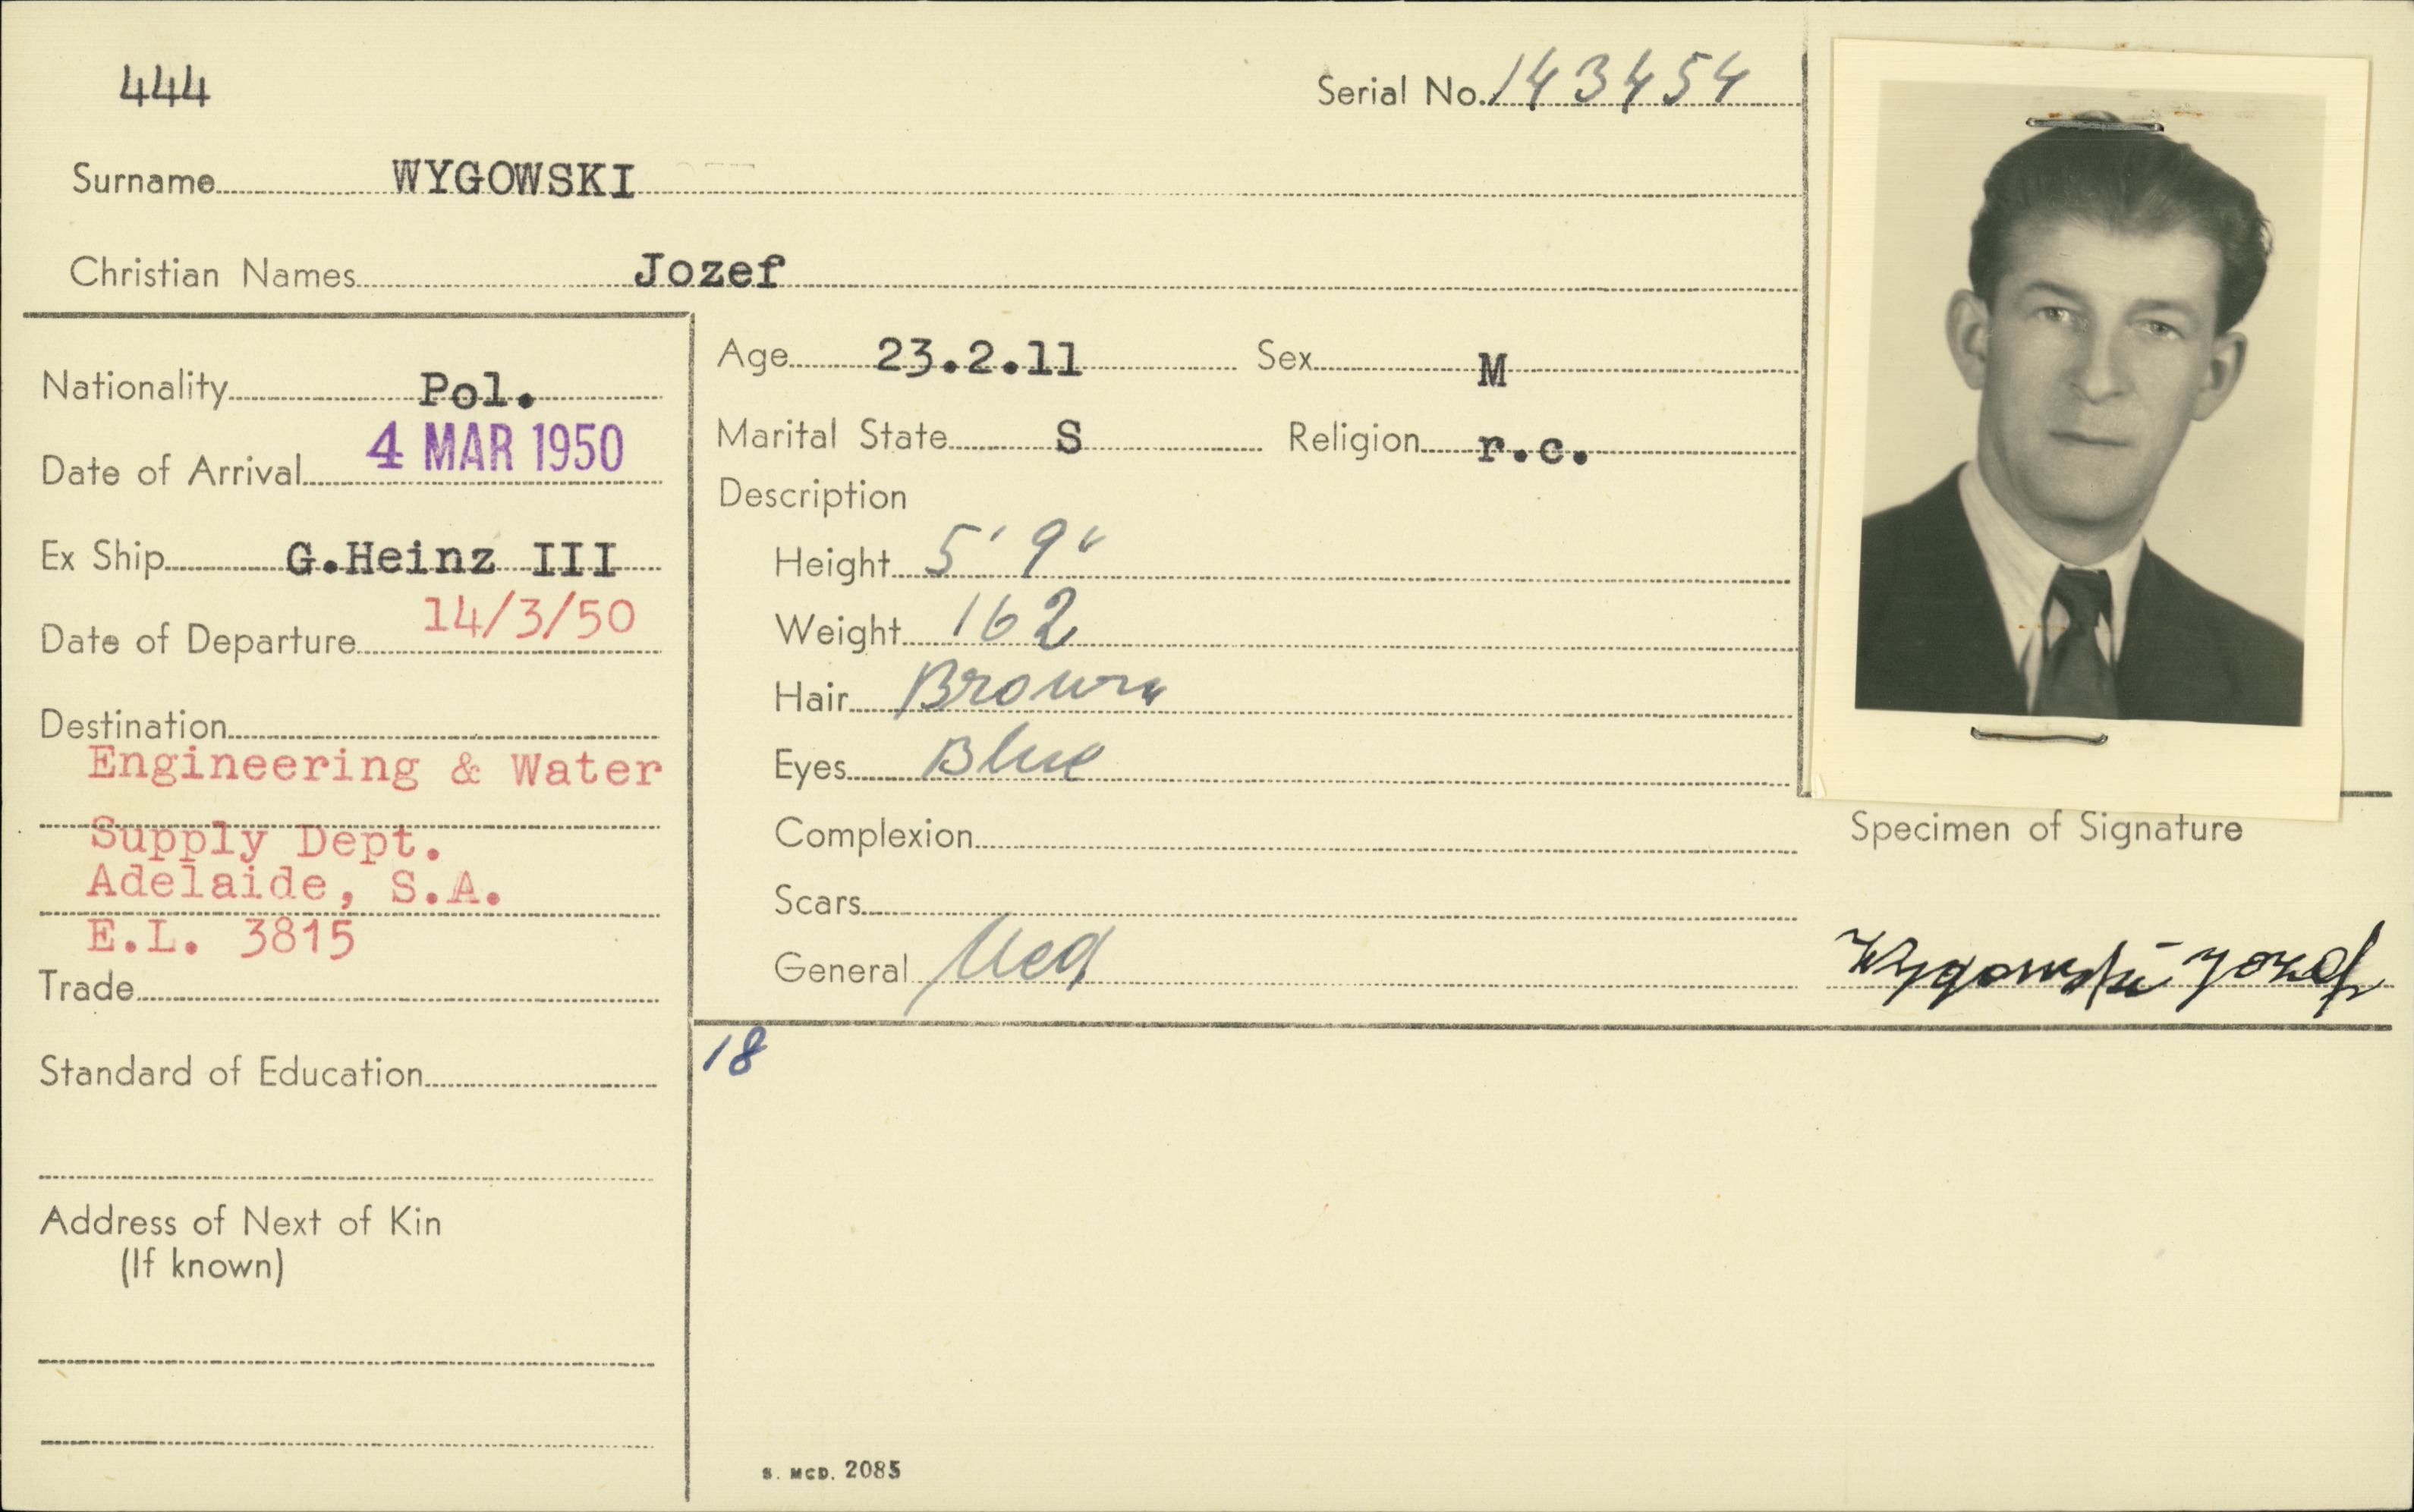 444
Serial No. 143454
Surname WYGOWSKI
Christian Names Jozef
Nationality Pol.
Date of Arrival 4 MAR 1950
Ex Ship G.Heinz III
Date of Departure 14/3/50
Destination
Engineering & Water
Supply Dept.
Adelaide, S.A.
E.L. 3815
Trade
Standard of Education
Address of Next of Kin
(If known)
Age 23.2.11 Sex M
Marital State S Religion r.c.
Description
Height 5' 9"
Weight 162
Hair Brown
Eyes Blue
Complexion
Scars
General Med
Specimen of Signature
Wygowski Jozef
18
S. MCD. 2085